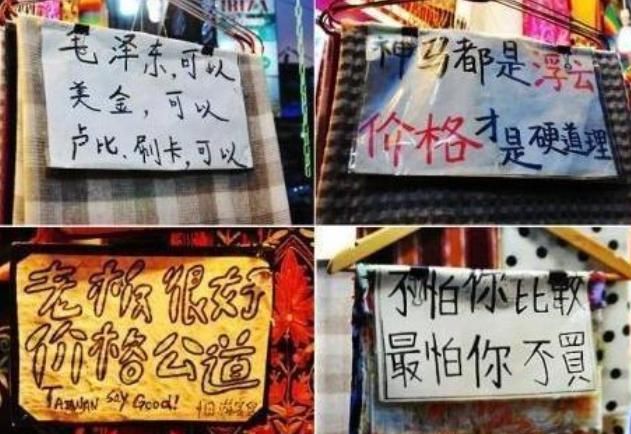 毛泽东,可以
美金,可以
卢比、刷卡,可以
神马都是浮云
价格才是硬道理
老板很好
价格公道
TAIWAN SAY GOOD!
不怕你比較
最怕你不買